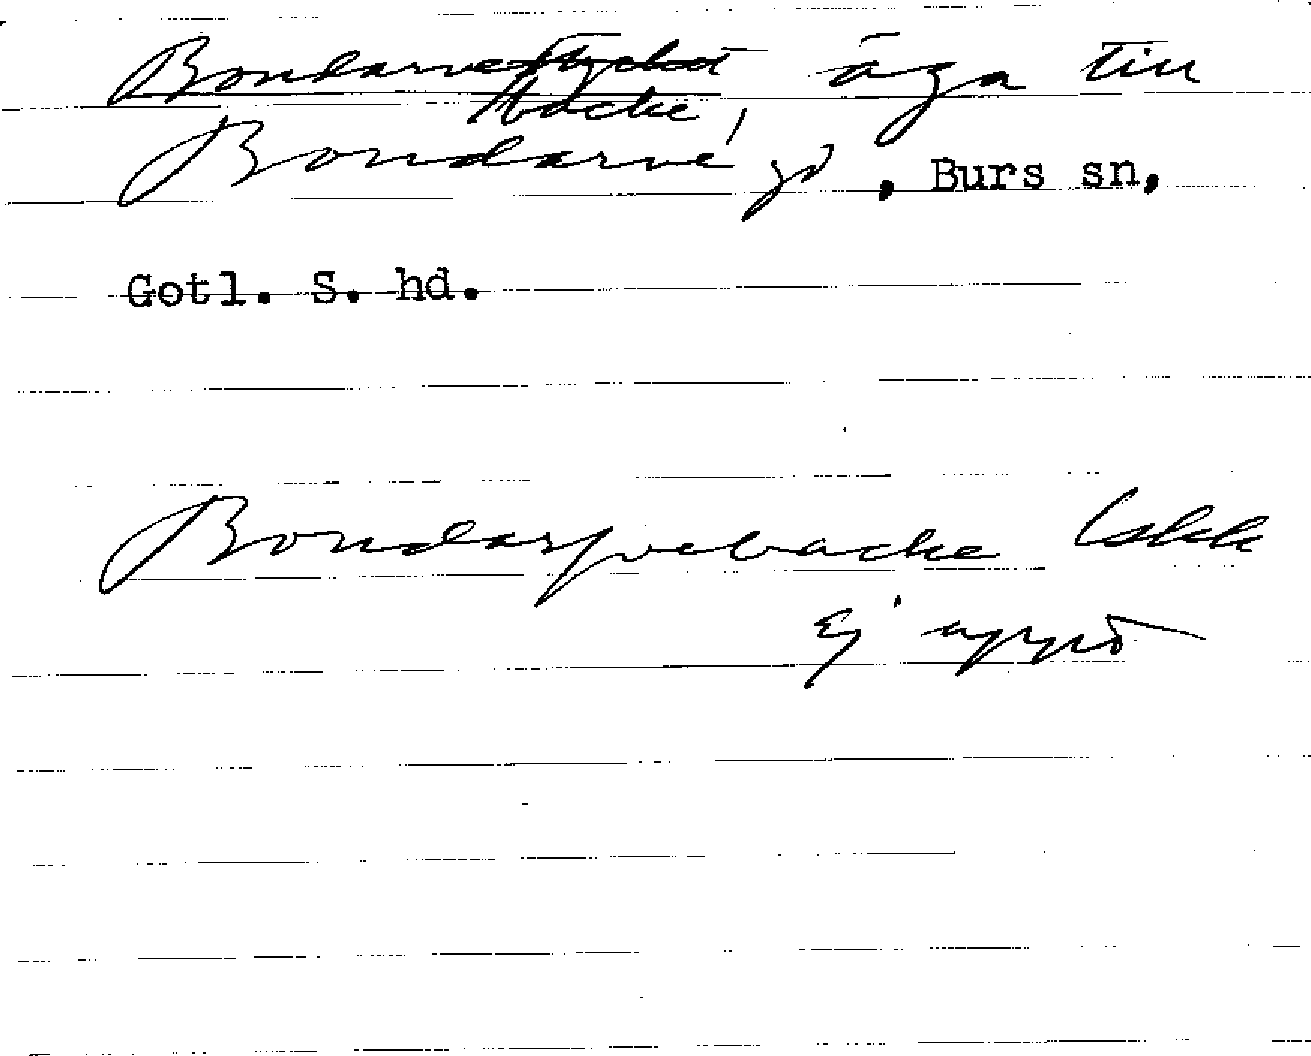 Bondarve backe, äga till
Bondarve gd, Burs sn,
Gotl. S. hd.
Bondarfvebacke Lskk
Ej uppt